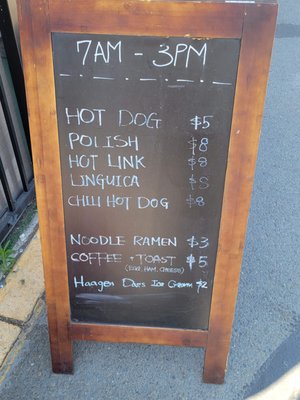 7AM - 3PM
HOT DOG $5
POLISH $8
HOT LINK $8
LINGUICA $8
CHILI HOT DOG $8
NOODLE RAMEN $3
COFFEE + TOAST $5
(EGG, HAM, CHEESE)
Haagen Dazs Ice Cream $2